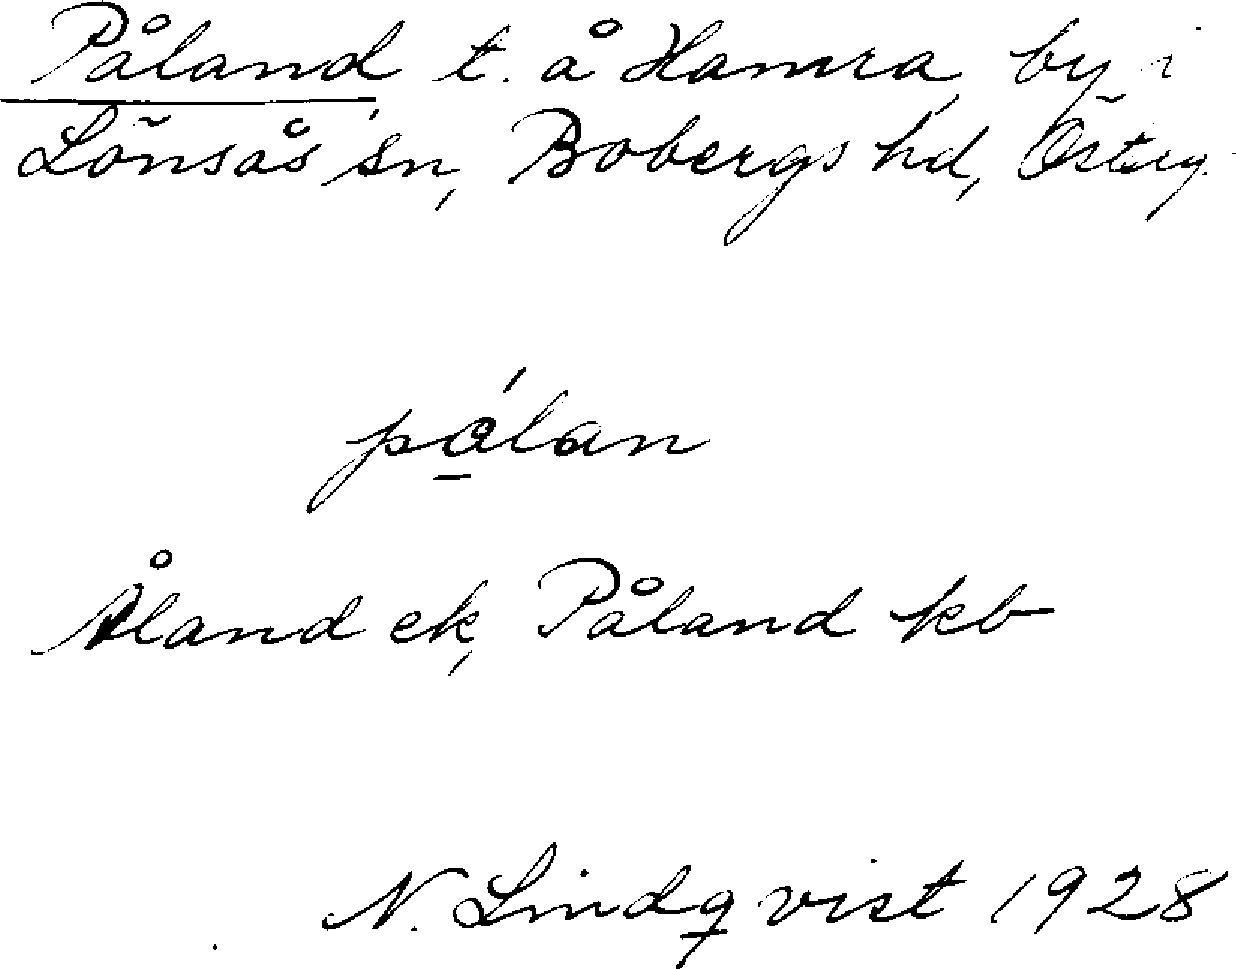 Påland, t. å Hamra, by i
Lönsås sn, Bobergs hd, Östrg.
pålan
Åland ek, Påland kb
N. Lindqvist 1928